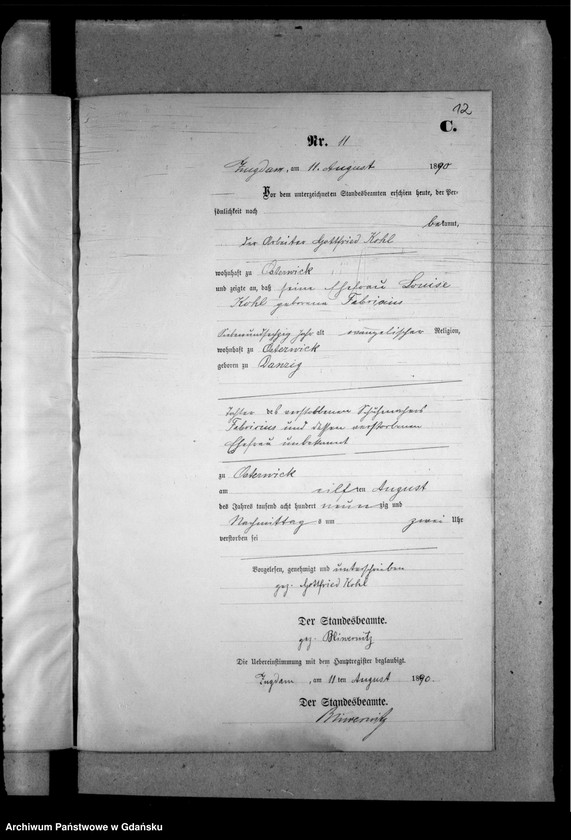 12
C.
Nr. 11
Zugdam, am 11. August 1890
Vor dem unterzeichneten Standesbeamten erschien heute, der Per-
sönlichkeit nach
bekannt,
der Arbeiter Gottfried Kohl
wohnhaft zu Osterwick
und zeigte an, daß seine Ehefrau Louise
Kohl geborene Fabricius
Siebenundsechzig Jahr alt evangelischer Religion,
wohnhaft zu Osterwick
geboren zu Danzig
Tochter des verstorbenen Schuhmachers
Fabricius und dessen verstorbenen
Ehefrau unbekannt
zu Osterwick
am eilften August
des Jahres tausend acht hundert neunzig und
Nachmittags um zwei Uhr
verstorben sei
Vorgelesen, genehmigt und unterschrieben
gez. Gottfried Kohl
Der Standesbeamte.
gez.
Die Uebereinstimmung mit dem Hauptregister beglaubigt.
Zugdam, am 11 ten August 1890.
Der Standesbeamte.
Archiwum Państwowe w Gdańsku